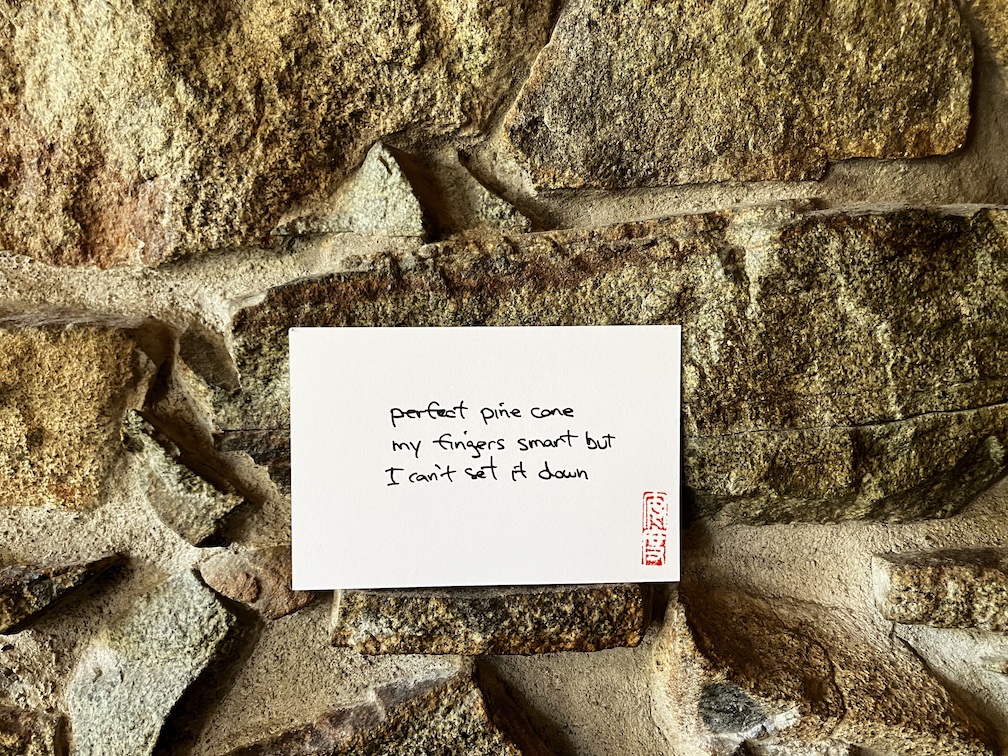 perfect pine cone
my fingers smart but
I can't set it down